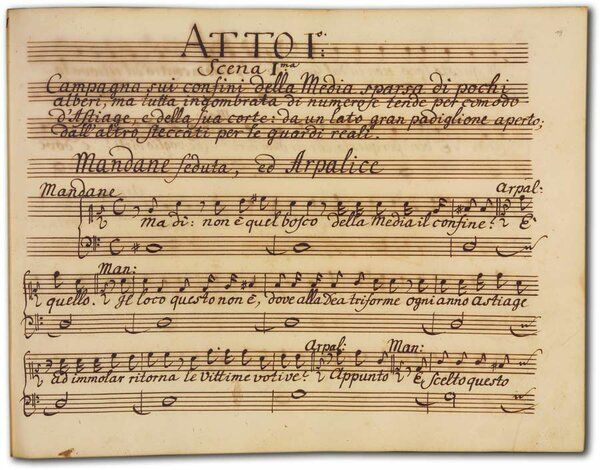 ATTO I.º
Scena I.ma
Campagna sui confini della Media sparsa di pochi
alberi, ma tutta ingombrata di numerose tende per comodo
d'Astiage, e della sua corte: da un lato gran padiglione aperto;
dall'altro steccati per le guardi reali.
Mandane seduta, ed Arpalice
Mandane Arpal:
Ma di: non è quel bosco della Media il confine? È
Man:
quello. Il loco questo non è, dove alla Dea triforme ogni anno Astiage
Arpal: Man:
ad immolar ritorna le Vittime votive? Appunto Scelto questo